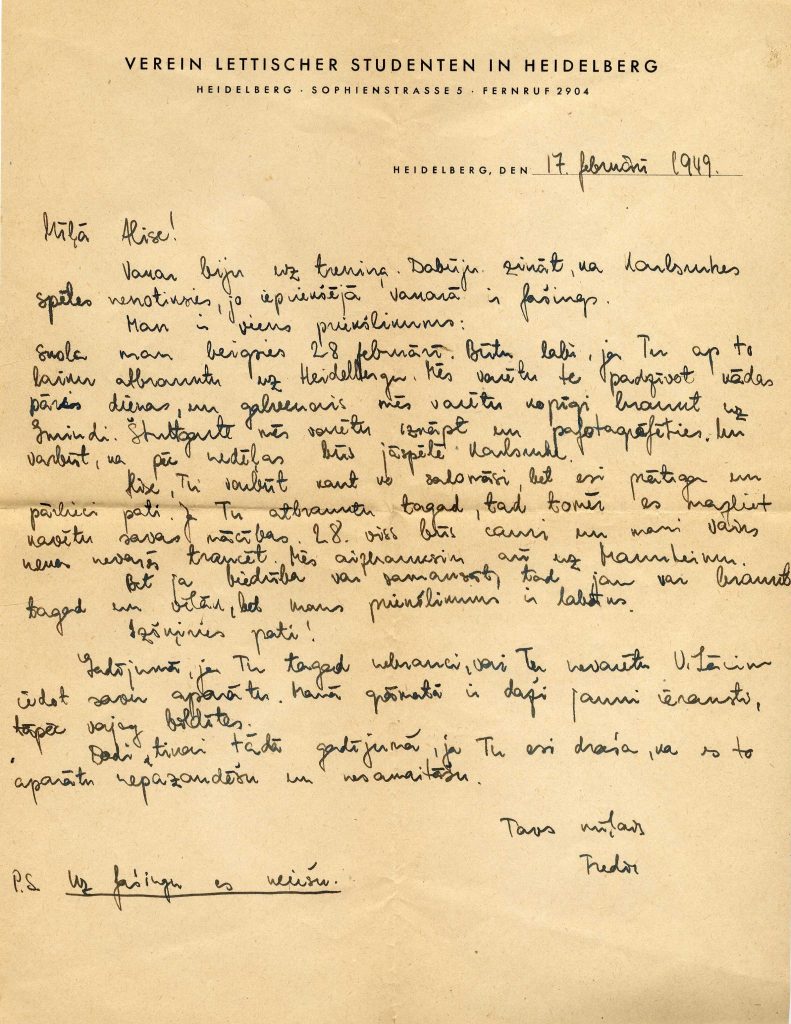 VEREIN LETTISCHER STUDENTEN IN HEIDELBERG
HEIDELBERG · SOPHIENSTRASSE 5 · FERNRUF 2904
HEIDELBERG, DEN 17. februārī 1949.
Mīļā Alise!
Vakar biju uz treniņ. Dabūju zināt, ka Karlsruhes
spēles nenotiksies, jo iepriekšējā vakarā ir fašings.
Man ir viens priekšlikums:
Skola man beigsies 28 februārī. Būtu labi, ja Tu ap to
laiku atbrauktu uz Heidelbergu. Mēs varētu te padzīvot kādas
pāris dienas, un galvenais mēs varētu kopīgi braukt uz
Gmindi. Štuttgarte mēs varētu izkāpt un pafotografēties. Un
varbūt, ka pēc nedēļas būs jāspēlē Karlsruhē.
Alise, Tu varbūt kaut ko salamāsi, bet esi prātīga un
pārliec pati. Ja Tu atbrauktu tagad, tad tomēr es mazliet
kavētu savas mācības. 28. viss būs cauri un mani vairs
nekas nevarēs traucēt. Mēs aizbrauksim arī uz Mannheimu.
Bet ja biedrība var samaksāt, tad jau var braukt
tagad un vēlāk, bet mans priekšlikums ir labāks.
Izšķiries pati!
Gadījumā, ja Tu tagad nebrauci, vai Tu nevarētu V. Lācim
iedot savu aparātu. Manā grāmatā ir daži jauni ieraksti,
tāpēc vajag bildītes.
Dodi tikai tādā gadījumā, ja Tu esi droša, ka es to
aparātu nepazaudēšu un nesamaitāšu.
Tavs mīļais
Fredis
P.S. Uz fašingu es neiešu.